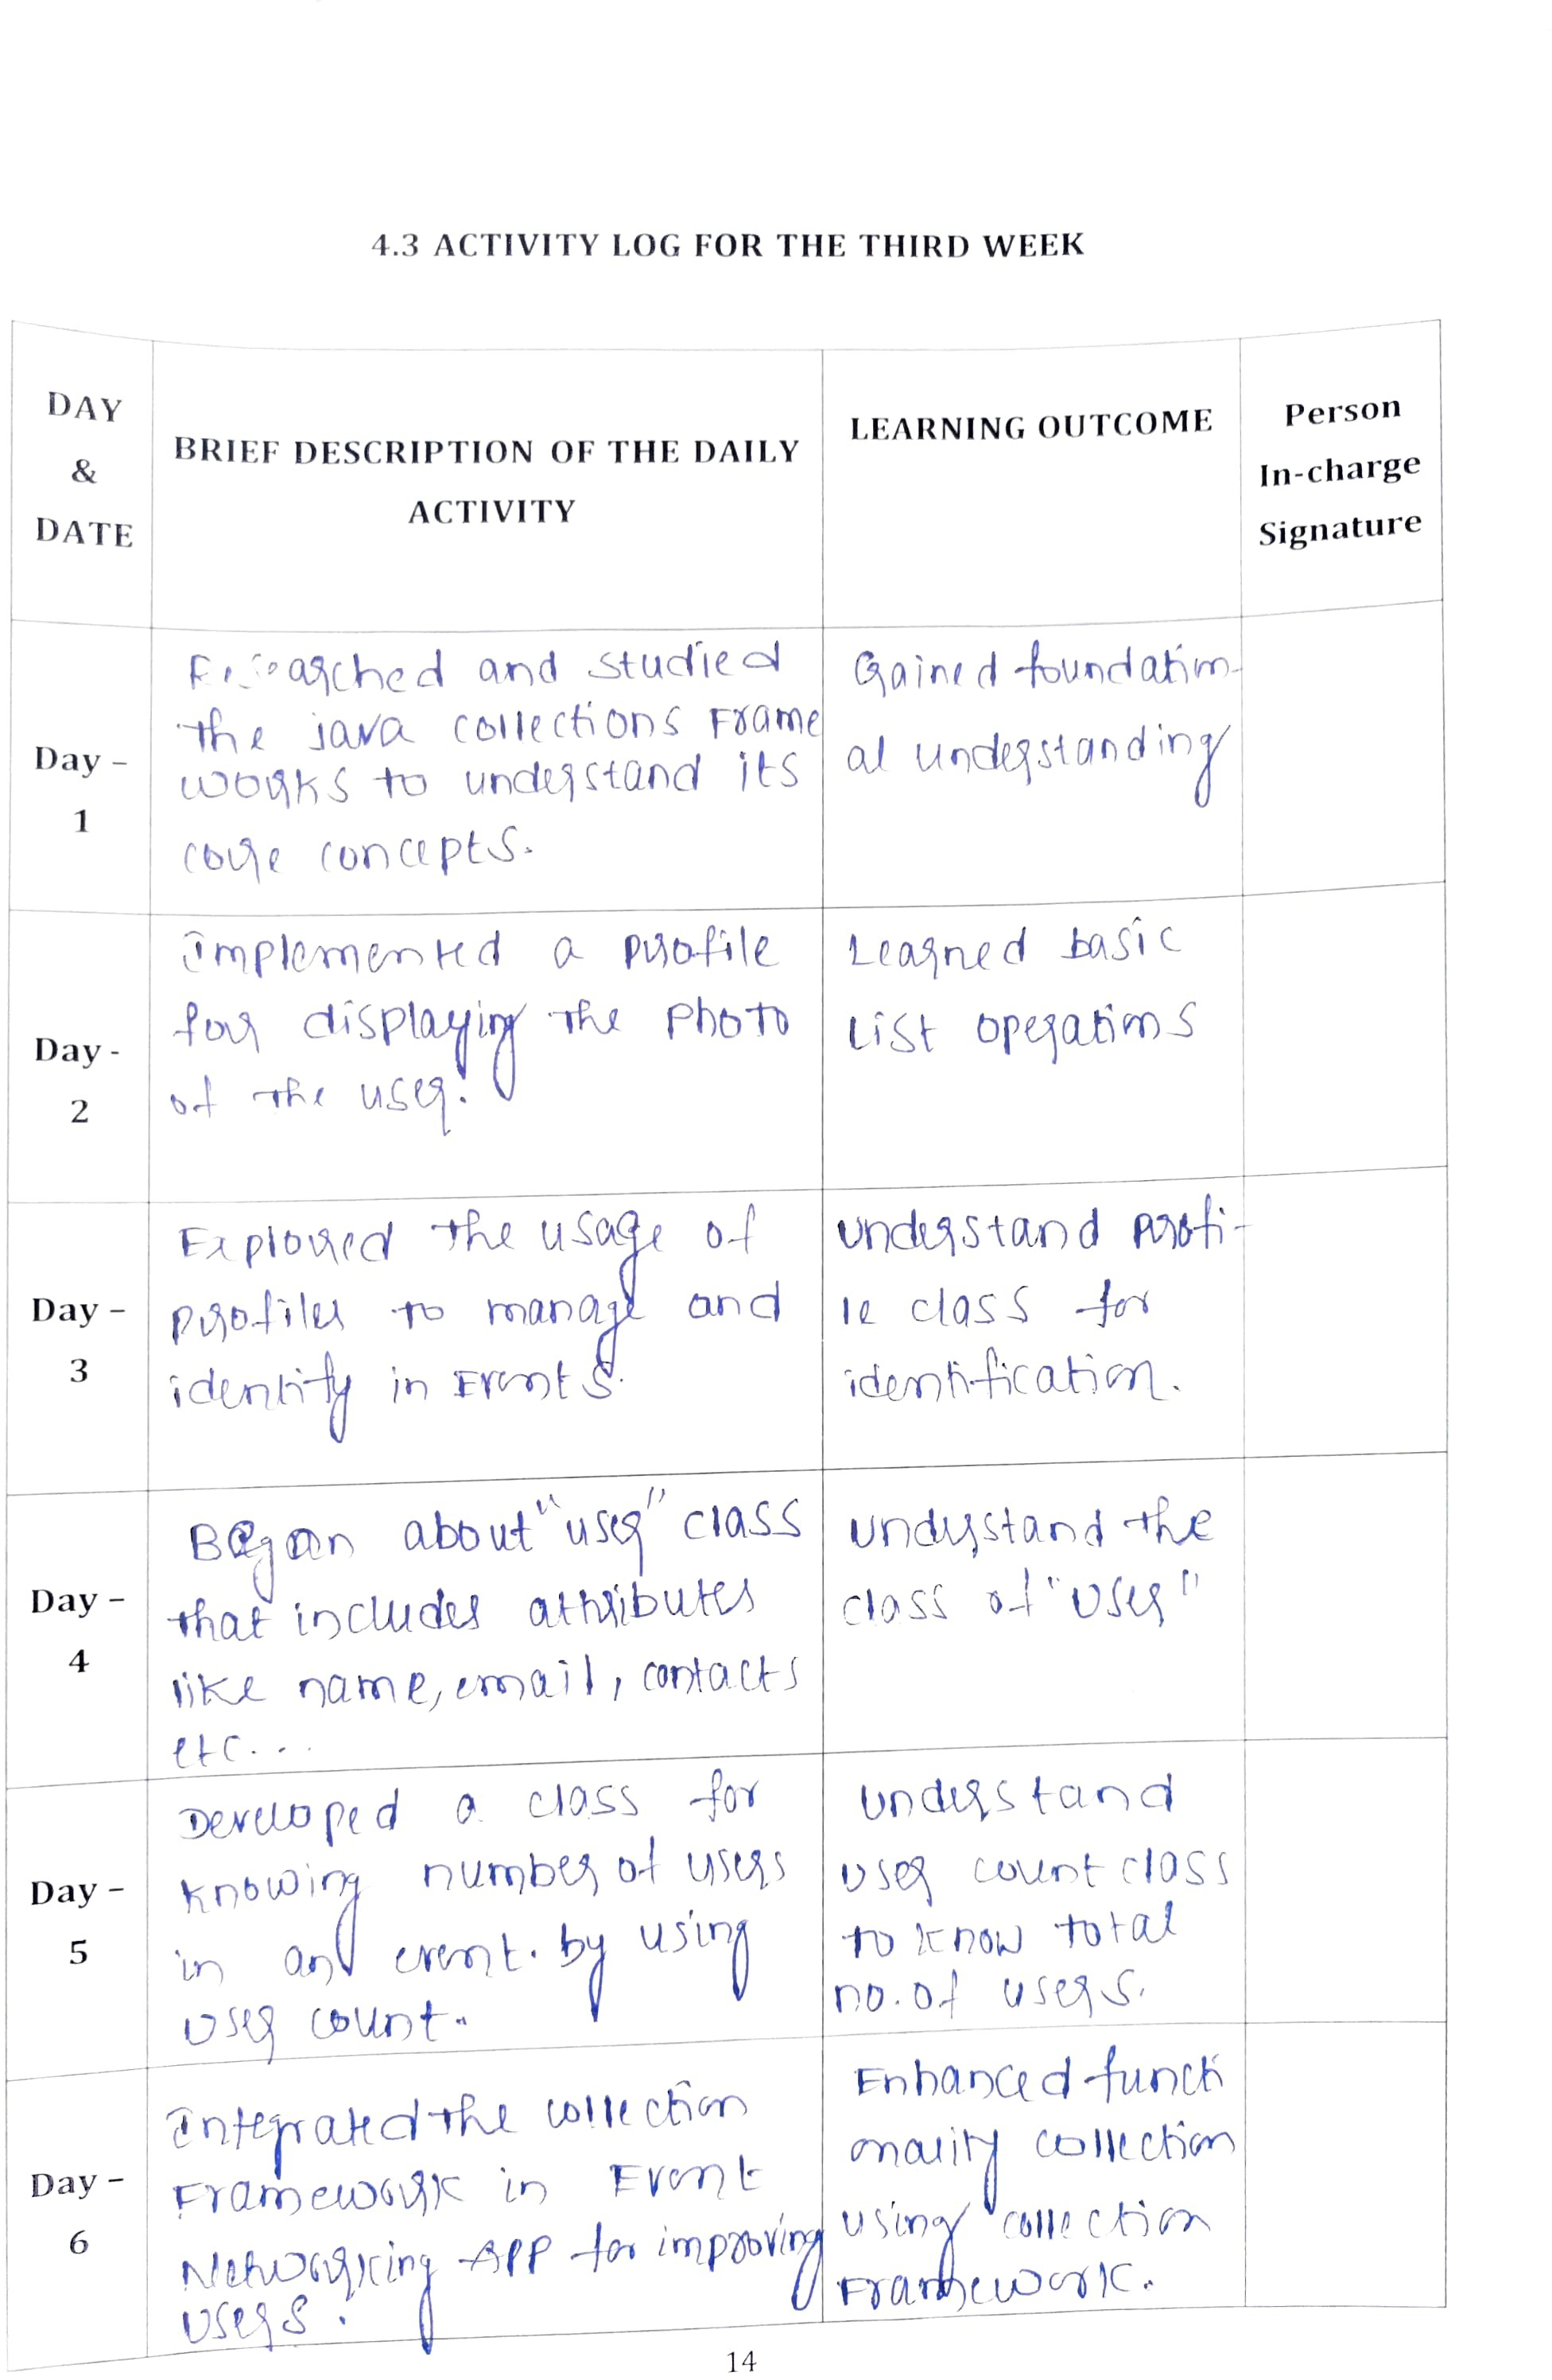 4.3 ACTIVITY LOG FOR THE THIRD WEEK
DAY
&
DATE
BRIEF DESCRIPTION OF THE DAILY
ACTIVITY
LEARNING OUTCOME
Person
In-charge
Signature
Day –
1
Researched and studied
the java collections Frame
works to understand its
core concepts.
Gained foundation-
al understanding
Day -
2
Implemented a profile
for displaying the photo
of the user.
Learned basic
List operations
Day –
3
Explored the usage of
profiles to manage and
identity in Events.
understand profi-
le class for
identification.
Day –
4
Began about "user" class
that includes attributes
like name, email, contacts
etc...
understand the
class of "user"
Day –
5
Developed a class for
knowing number of users
in an event. by using
user count.
understand
user count class
to know total
no. of users.
Day –
6
Integrated the collection
Framework in Event
Networking App for improving
users.
Enhanced functi
onality collection
using collection
Framework.
14